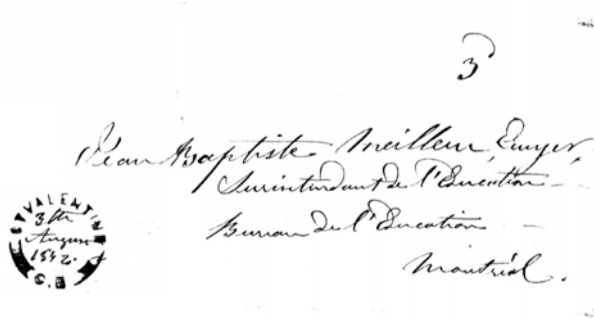 3
Jean Baptiste Meilleur, Ecuyer,
Surintendant de l'Education
Bureau de l'Education
Montréal.
ST VALENTIN
3th
August
1842.
C.E